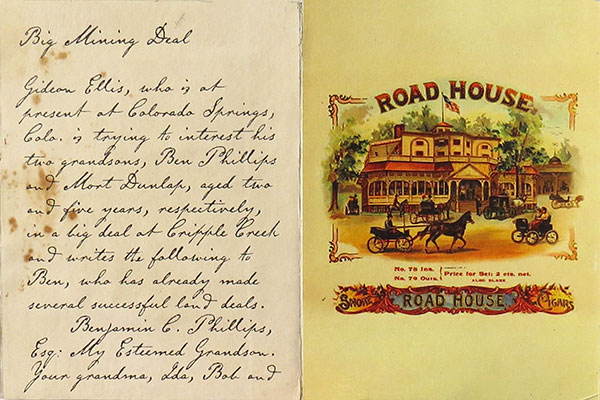 Big Mining Deal
Gideon Ellis, who is at
present at Colorado Springs,
Colo. is trying to interest his
two grandsons, Ben Phillips
and Mort Dunlap, aged two
and five years, respectively,
in a big deal at Cripple Creek
and writes the following to
Ben, who has already made
several successful land deals.
Benjamin C. Phillips,
Esq: My Esteemed Grandson.
Your grandma, Ida, Bob and
ROAD HOUSE
No. 78 Ins.
No. 79 Outs.
Price for Set: 2 cts. net.
ALSO BLANK
SMOKE ROAD HOUSE CIGARS